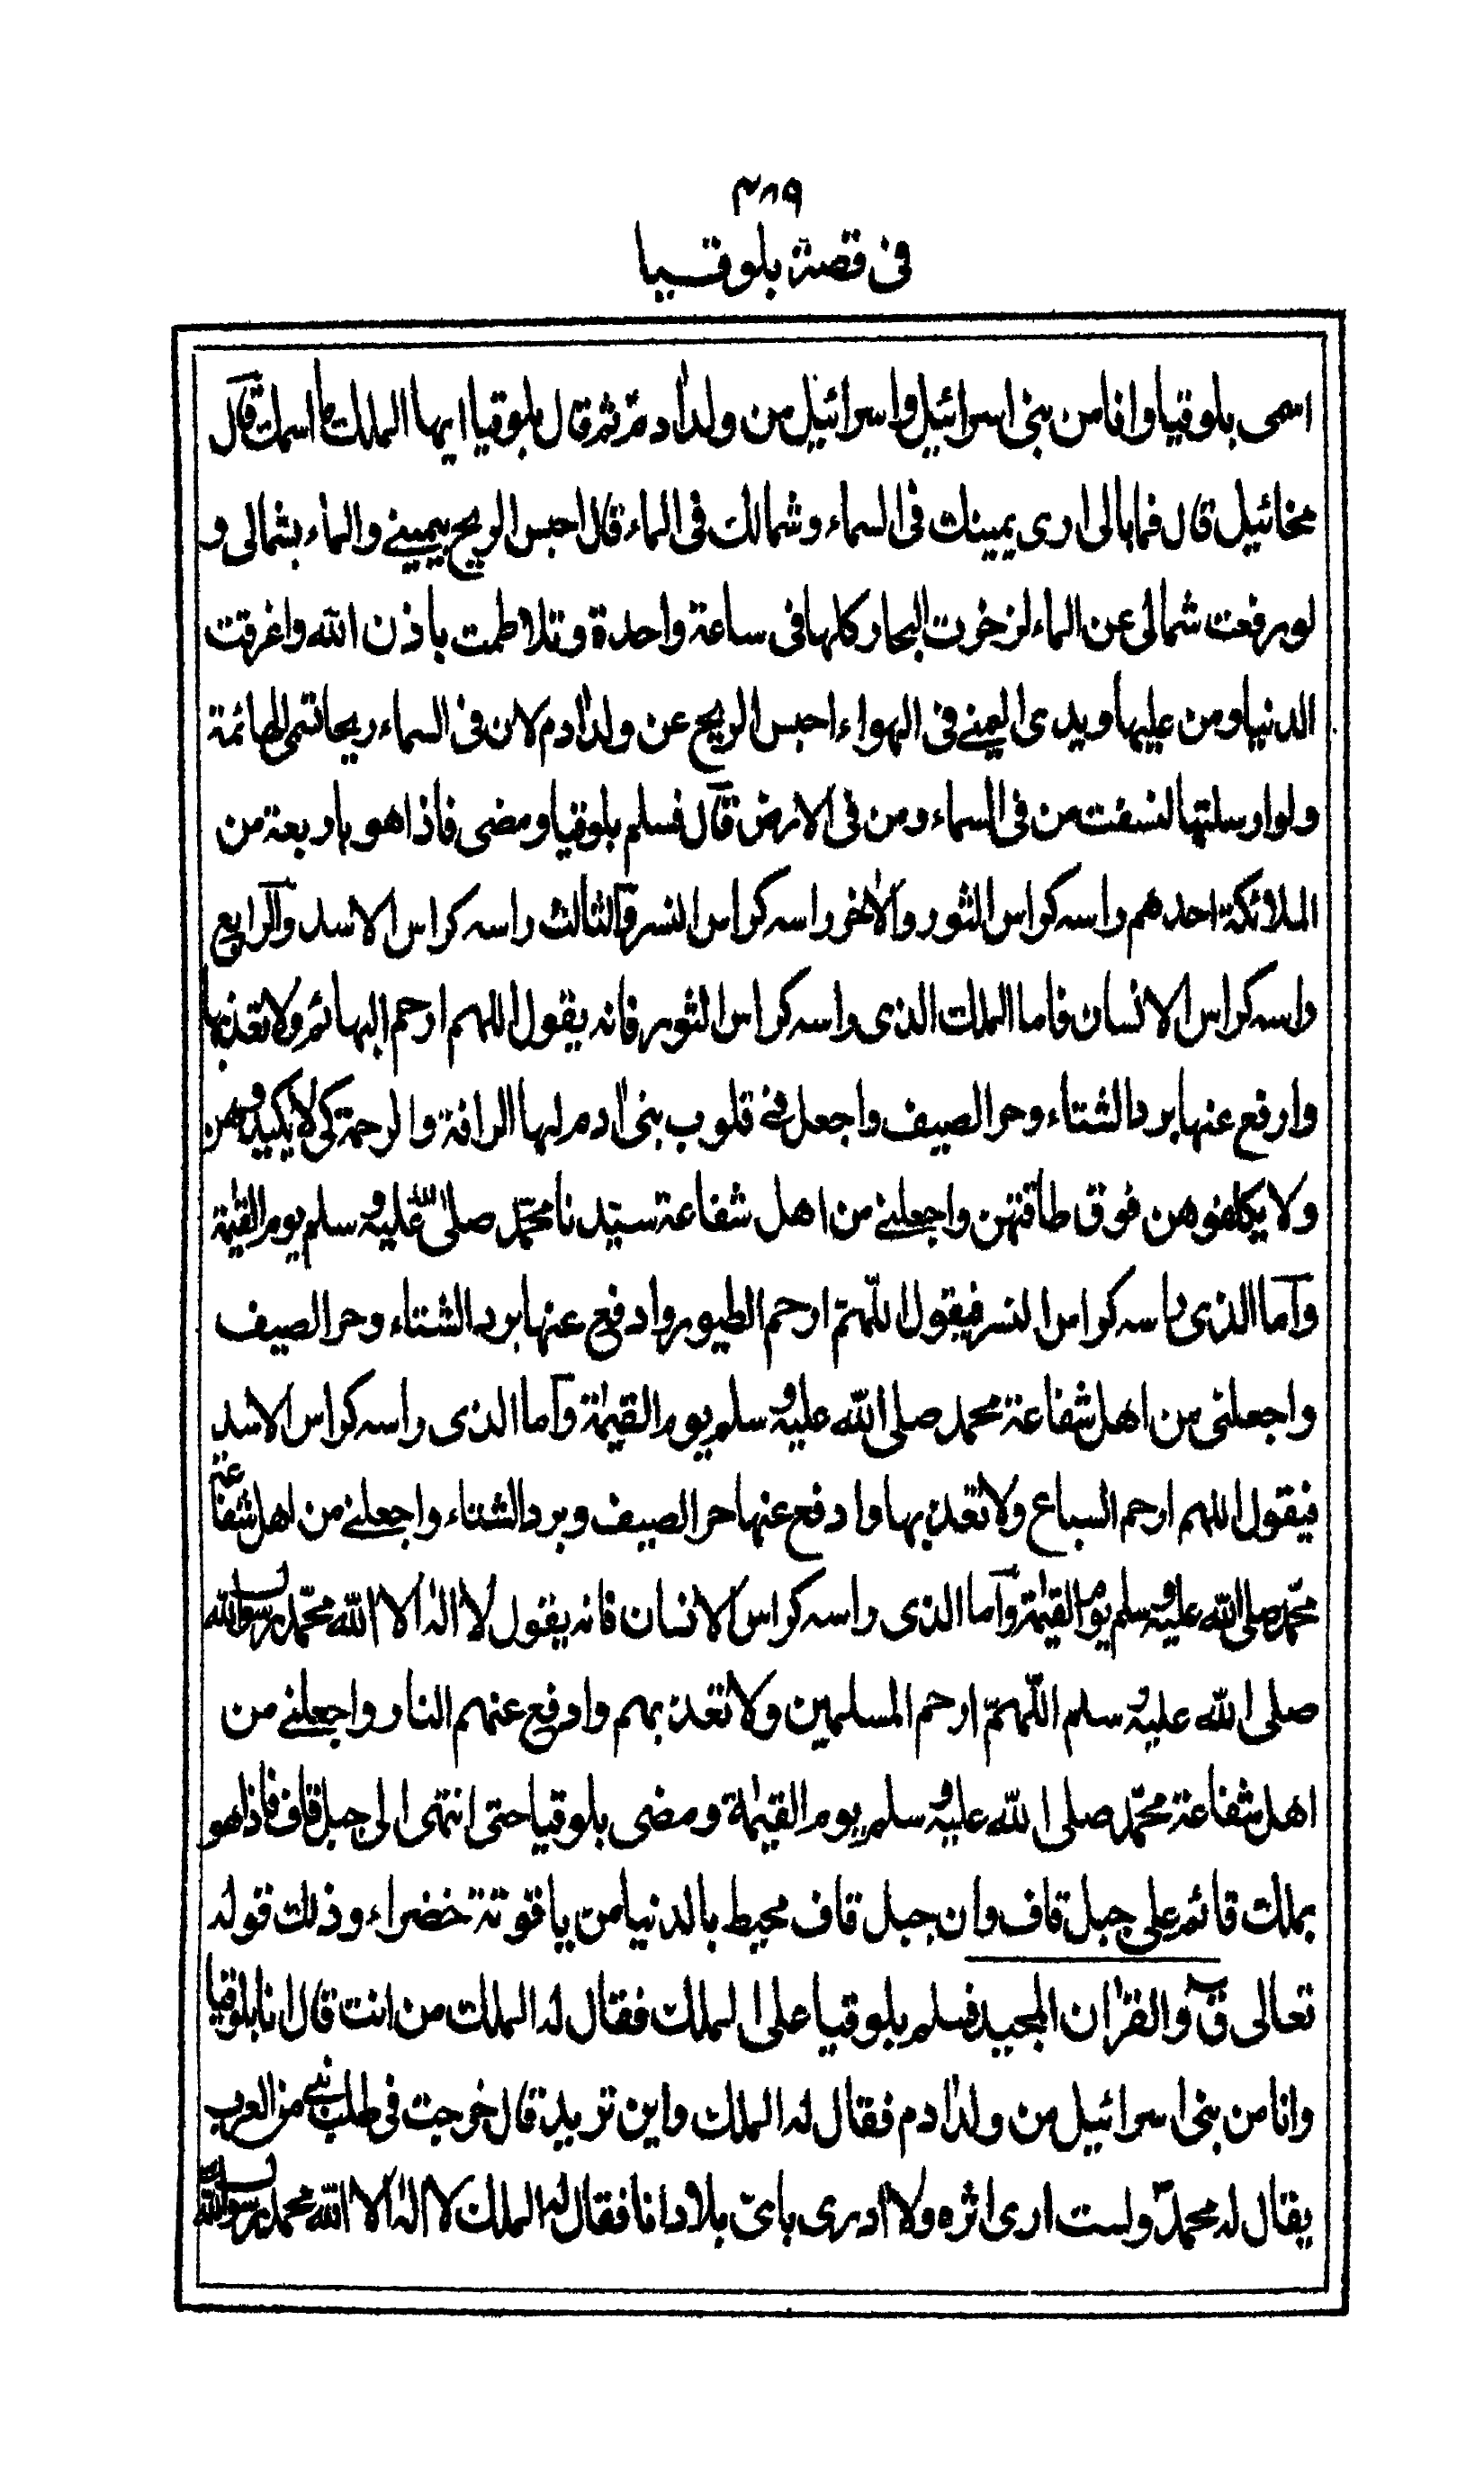 ٣٨٩
فى قصة بلوقيا
اسمى بلوقيا وانا من بنى اسرائيل واسرائيل من ولد اٰدم ثم قال بلوقيا ايها الملك ما اسمك قال
مخائيل قال فما بالى ارى يمينك فى السماء وشمالك فى الماء قال احبس الريح بيمينے والماء بشمالى و
لو رفعت شمالى عن الماء لزخرت البحار كلها فى ساعة واحدة وتلاطمت باذن الله واغرقت
الدنيا ومن عليها ويدى اليمنے فى الهواء احبس الريح عن ولد اٰدم لان فى السماء ريحا تسمى الهائمة
ولو ارسلتها لنسفت من فى السماء ومن فى الارض قال فسلم بلوقيا ومضى فاذا هو باربعة من
الملائكة احدهم راسه كراس الثور والاٰخر راسه كراس النسر والثالث راسه كراس الاسد والرابع
راسه كراس الانسان فاما الملك الذى راسه كراس الثور فانه يقول اللهم ارحم البهائم ولا تعذبها
وارفع عنها برد الشتاء وحر الصيف واجعل فے قلوب بنى اٰدم لها الرافة والرحمة كى لا يكيدوهن
ولا يكلفوهن فوق طاقتهن واجعلنے من اهل شفاعة سيّدنا محمّد صلى الله عليه وسلم يوم القيٰمة
وآما الذى راسه كراس النسر فيقول اللّهمّ ارحم الطيور وادفع عنها برد الشتاء وحر الصيف
واجعلنى من اهل شفاعة محمد صلى الله عليه وسلم يوم القيٰمة وآما الذى راسه كراس الاسد
فيقول اللهم ارحم السباع ولا تعذبها وادفع عنها حر الصيف وبرد الشتاء واجعلنے من اهل شفاعة
محمّد صلى الله عليه وسلم يوم القيٰمة وآما الذى راسه كراس الانسان فانه يقول لا اله الا الله محمّد رسول الله
صلى الله عليه وسلم اللّهمّ ارحم المسلمين ولا تعذبهم وادفع عنهم النار واجعلنے من
اهل شفاعة محمّد صلى الله عليه وسلم يوم القيٰمة ومضى بلوقيا حتى انتهى الى جبل قاف فاذا هو
بملك قائم على جبل قاف وان جبل قاف محيط بالدنيا من ياقوتة خضراء وذلك قوله
تعالى قٓ والقراٰن المجيد فسلم بلوقيا على الملك فقال له الملك من انت قال انا بلوقيا
وانا من بنى اسرائيل من ولد اٰدم فقال له الملك واين تريد قال خرجت فى طلب نبے من العرب
يقال له محمد ولست ارى اثره ولا ادرى باىّ بلاد انا فقال له الملك لا اله الا الله محمد رسول الله